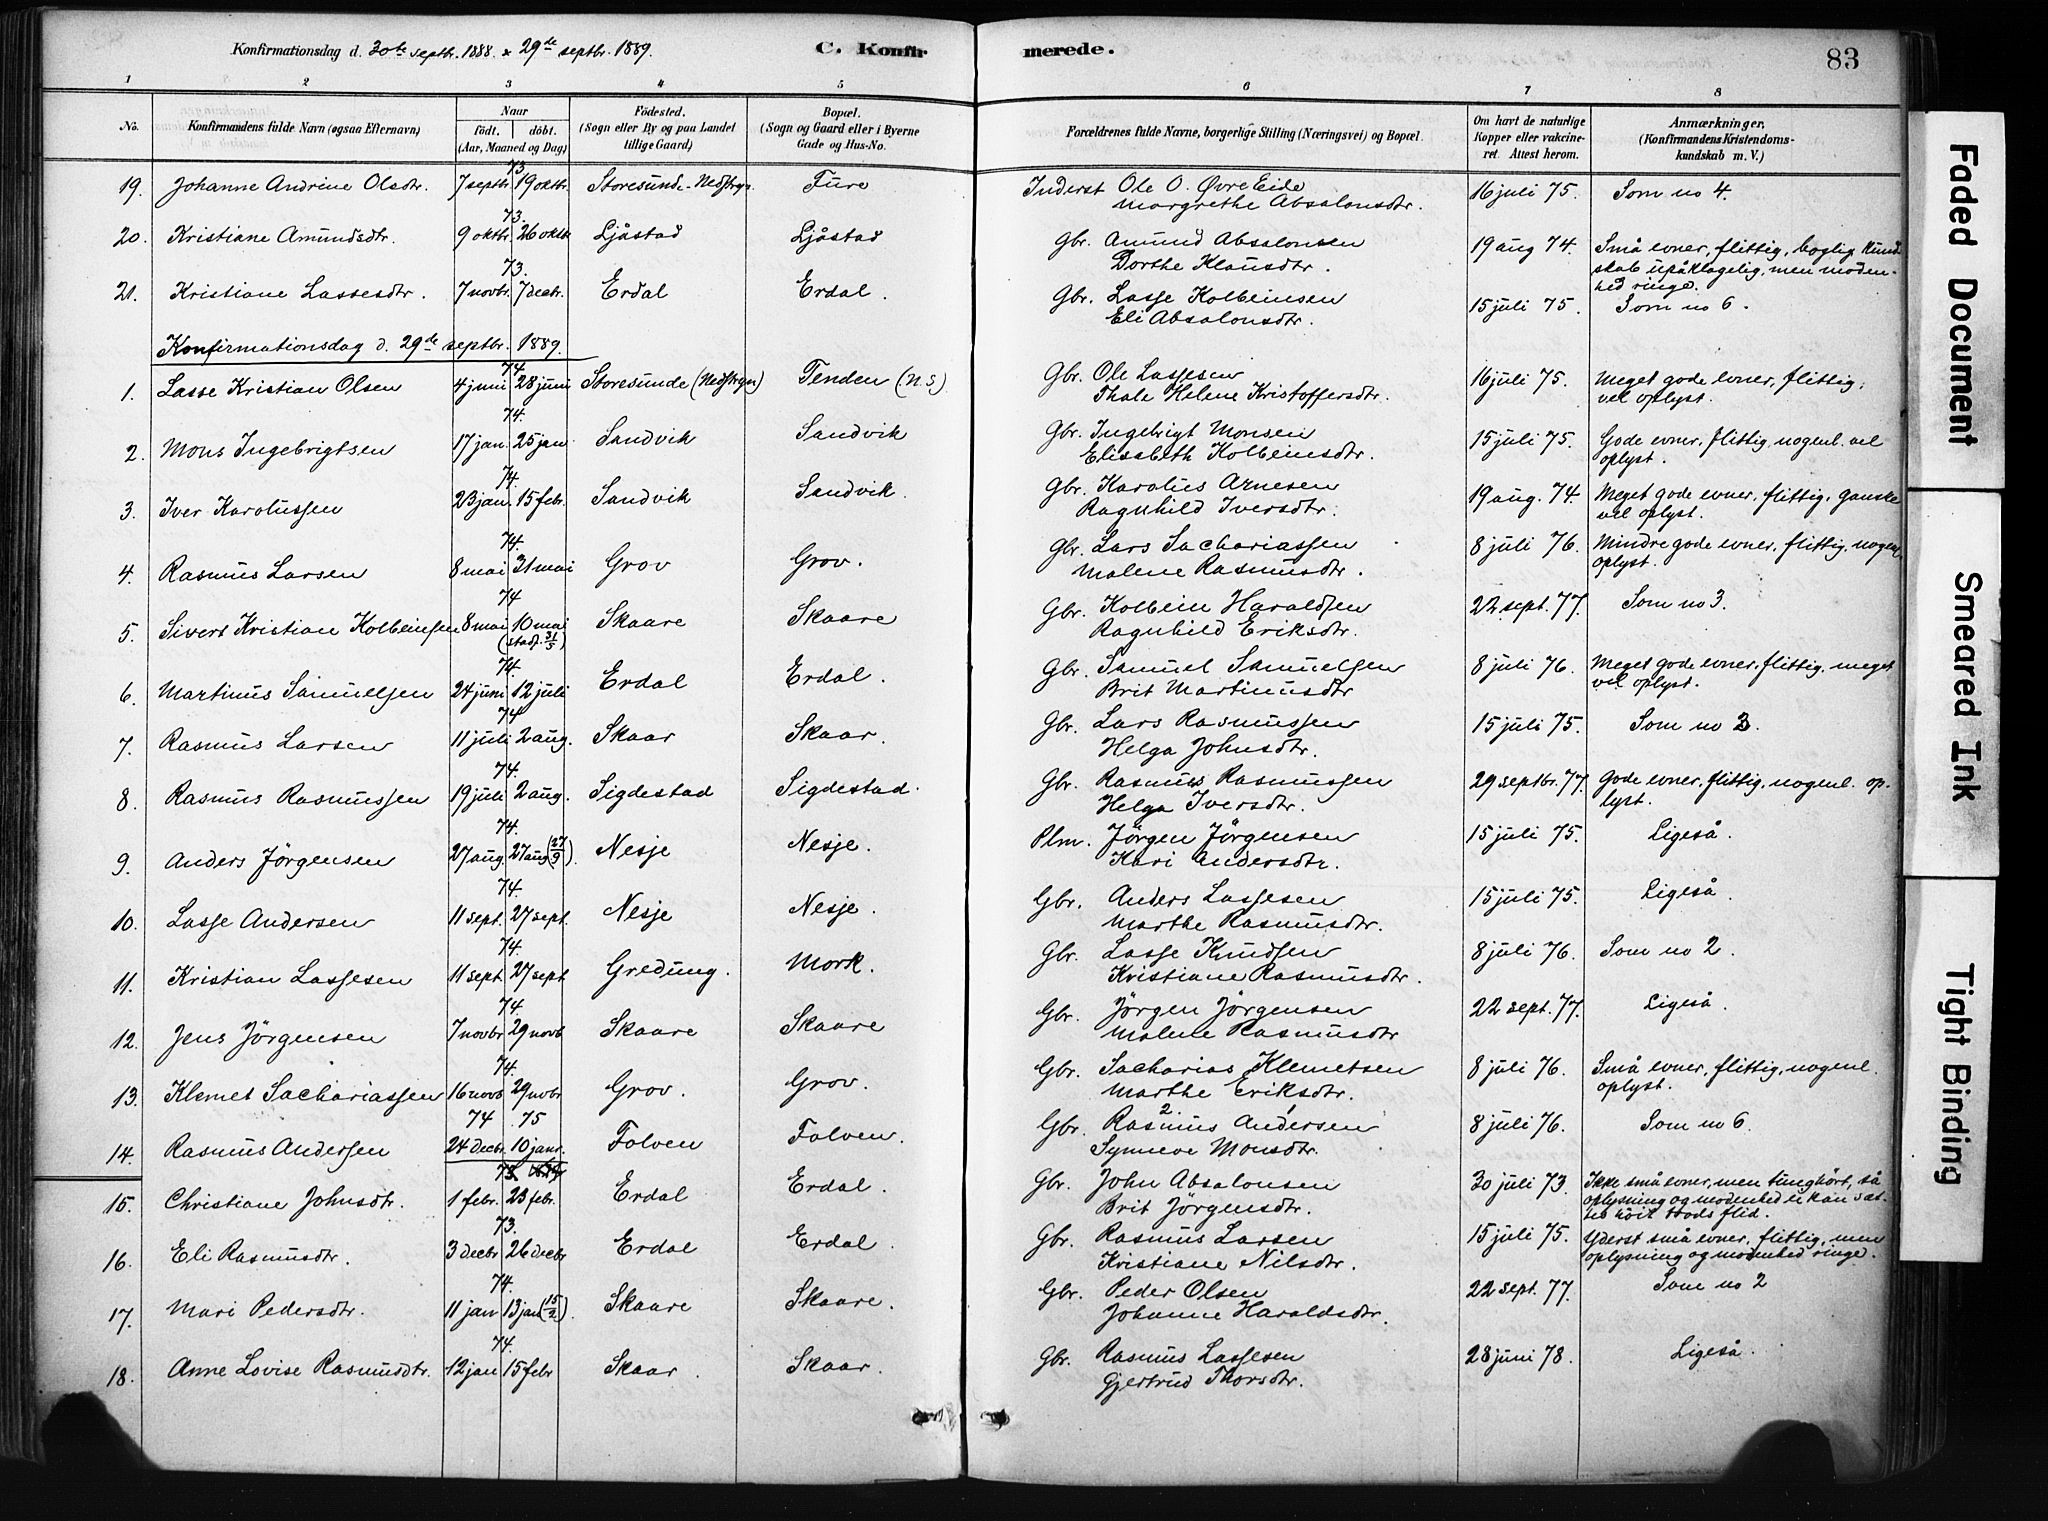 Konfirmationsdag d. 30te septbr. 1888 & 29de septbr. 1889. C. Konfirmerede. 83
1 2 3 4 5 6 7 8
No. Konfirmandens fulde Navn (ogsaa Efternavn) Naar født. døbt. (Aar, Maaned og Dag) Fødested. (Sogn eller By og paa Landet tillige Gaard) Bopæl. (Sogn og Gaard eller i Byerne Gade og Hus-No. Forældrenes fulde Navne, borgerlige Stilling (Næringsvei) og Bopæl. Om havt de naturlige Kopper eller vakcineret. Attest herom. Anmærkninger, (Konfirmandens Kristendomskundskab m. V.)
73
19. Johanne Andrine Olsdtr. 7 septbr. 19 oktbr. Storesunde-Nedstryn. Fure Inderst Ole O. Øvre Eide 16 juli 75. Som no 4.
Margrethe Absalonsdtr.
73.
20. Kristiane Amundsdtr. 9 oktbr. 26 oktbr Ljåstad Ljåstad Gbr. Amund Absalonsen 19 aug 74. Små evner, flittig, boglig Kund-
Dorthe Klausdtr. skab upåklagelig, men moden-
hed ringe.
73.
21. Kristiane Lassesdtr. 7 novbr. 7 decbr. Erdal Erdal. Gbr. Lasse Kolbeinsen 15 juli 75. Som no 6.
Eli Absalonsdtr.
Konfirmationsdag d. 29de septbr. 1889.
74.
1. Lasse Kristian Olsen 4 juni 28 juni Storesunde (Nedstryn) Tenden (N.S.) Gbr. Ole Lassesen 16 juli 75. Meget gode evner, flittig,
Thale Helene Kristoffersdtr. vel oplyst.
74.
2. Mons Ingebrigtsen 17 jan. 25 jan. Sandvik Sandvik Gbr. Ingebrigt Monsen 15 juli 75. Gode evner, flittig, nogenl. vel
Elisabeth Kolbeinsdtr. oplyst.
74.
3. Iver Karolussen 23 jan. 15 febr. Sandvik Sandvik. Gbr. Karolus Arnesen 19 aug. 74. Meget gode evner, flittig, ganske
Ragnhild Iversdtr. vel oplyst.
74.
4. Rasmus Larsen 8 mai 31 mai Grov Grov. Gbr. Lars Sachariassen 8 juli 76. Mindre gode evner, flittig, nogenl
Malene Rasmusdtr. oplyst.
74
5. Sivert Kristian Kolbeinsen 8 mai 10 mai (stadf. 31/5) Skaare Skaare Gbr. Kolbein Haraldsen 22 sept. 77. Som no 3.
Ragnhild Eriksdtr.
74.
6. Martinus Samuelsen 24 juni 12 juli Erdal Erdal. Gbr. Samuel Samuelsen 8 juli 76. Meget gode evner, flittig, meget
Brit Martinusdtr vel oplyst.
74
7. Rasmus Larsen 11 juli 2 aug. Skaar Skaar. Gbr. Lars Rasmussen 15 juli 75. Som no
Helga Johnsdtr.
74.
8. Rasmus Rasmussen 19 juli 2 aug. Sigdestad Sigdestad. Gbr. Rasmus Rasmussen 29 septbr. 77. Gode evner, flittig, nogenl. op-
Helga Iversdtr. lyst.
74.
9. Anders Jörgensen 27 aug. 27 aug (27/9). Nesje Nesje. Plm. Jörgen Jörgensen 15 juli 75. Ligeså.
Kari Andersdtr.
74.
10. Lasse Andersen 11 sept. 27 sept. Nesje Nesje. Gbr. Anders Lassesen 15 juli 75. Ligeså.
Marthe Rasmusdtr.
74.
11. Kristian Lassesen 11 sept. 27 sept Gredung. Mork. Gbr. Lasse Knudsen 8 juli 76. Som no 2.
Kristiane Rasmusdtr.
74.
12. Jens Jörgensen 7 novbr 29 novb Skaare Skaare Gbr. Jörgen Jörgensen 22 sept. 77. Ligeså.
Malene Rasmusdtr
74.
13. Klemet Sachariassen 16 novb 29 novbr Grov. Grov. Gbr. Sacharias Klemetsen 8 juli 76. Små evner, flittig, nogenl.
Marthe Eriksdtr. oplyst.
74 75
14. Rasmus Andersen 24 decbr. 10 janr. Folven Folven. Gbr. Rasmus Andersen 8 juli 76. Som no 6.
Synneve Monsdtr.
73.
15. Christiane Johnsdtr. 1 febr. 23 febr. Erdal Erdal. Gbr. John Absalonsen 30 juli 73. Ikke små evner, men tunghört, så
Brit Jörgensdtr. oplysning og modenhed ei kan sæt-
tes höit trods flid.
73.
16. Eli Rasmusdtr. 3 decbr 26 decbr Erdal Erdal. Gbr. Rasmus Larsen 15 juli 75. Yderst små evner, flittig, men
Kristiane Nilsdtr. oplysning og modenhed ringe.
74.
17. Mari Pedersdtr. 11 jan 13 jan (15/2) Skaare Skaare. Gbr. Peder Olsen 22 sept. 77. Som no 2
Johanne Haraldsdtr.
74.
18. Anne Lovise Rasmusdtr. 12 jan 15 febr Skaar. Skaar. Gbr. Rasmus Lassesen 28 juni 78. Ligeså.
Gjertrud Thorsdtr.
Faded Document
Smeared Ink
Tight Binding